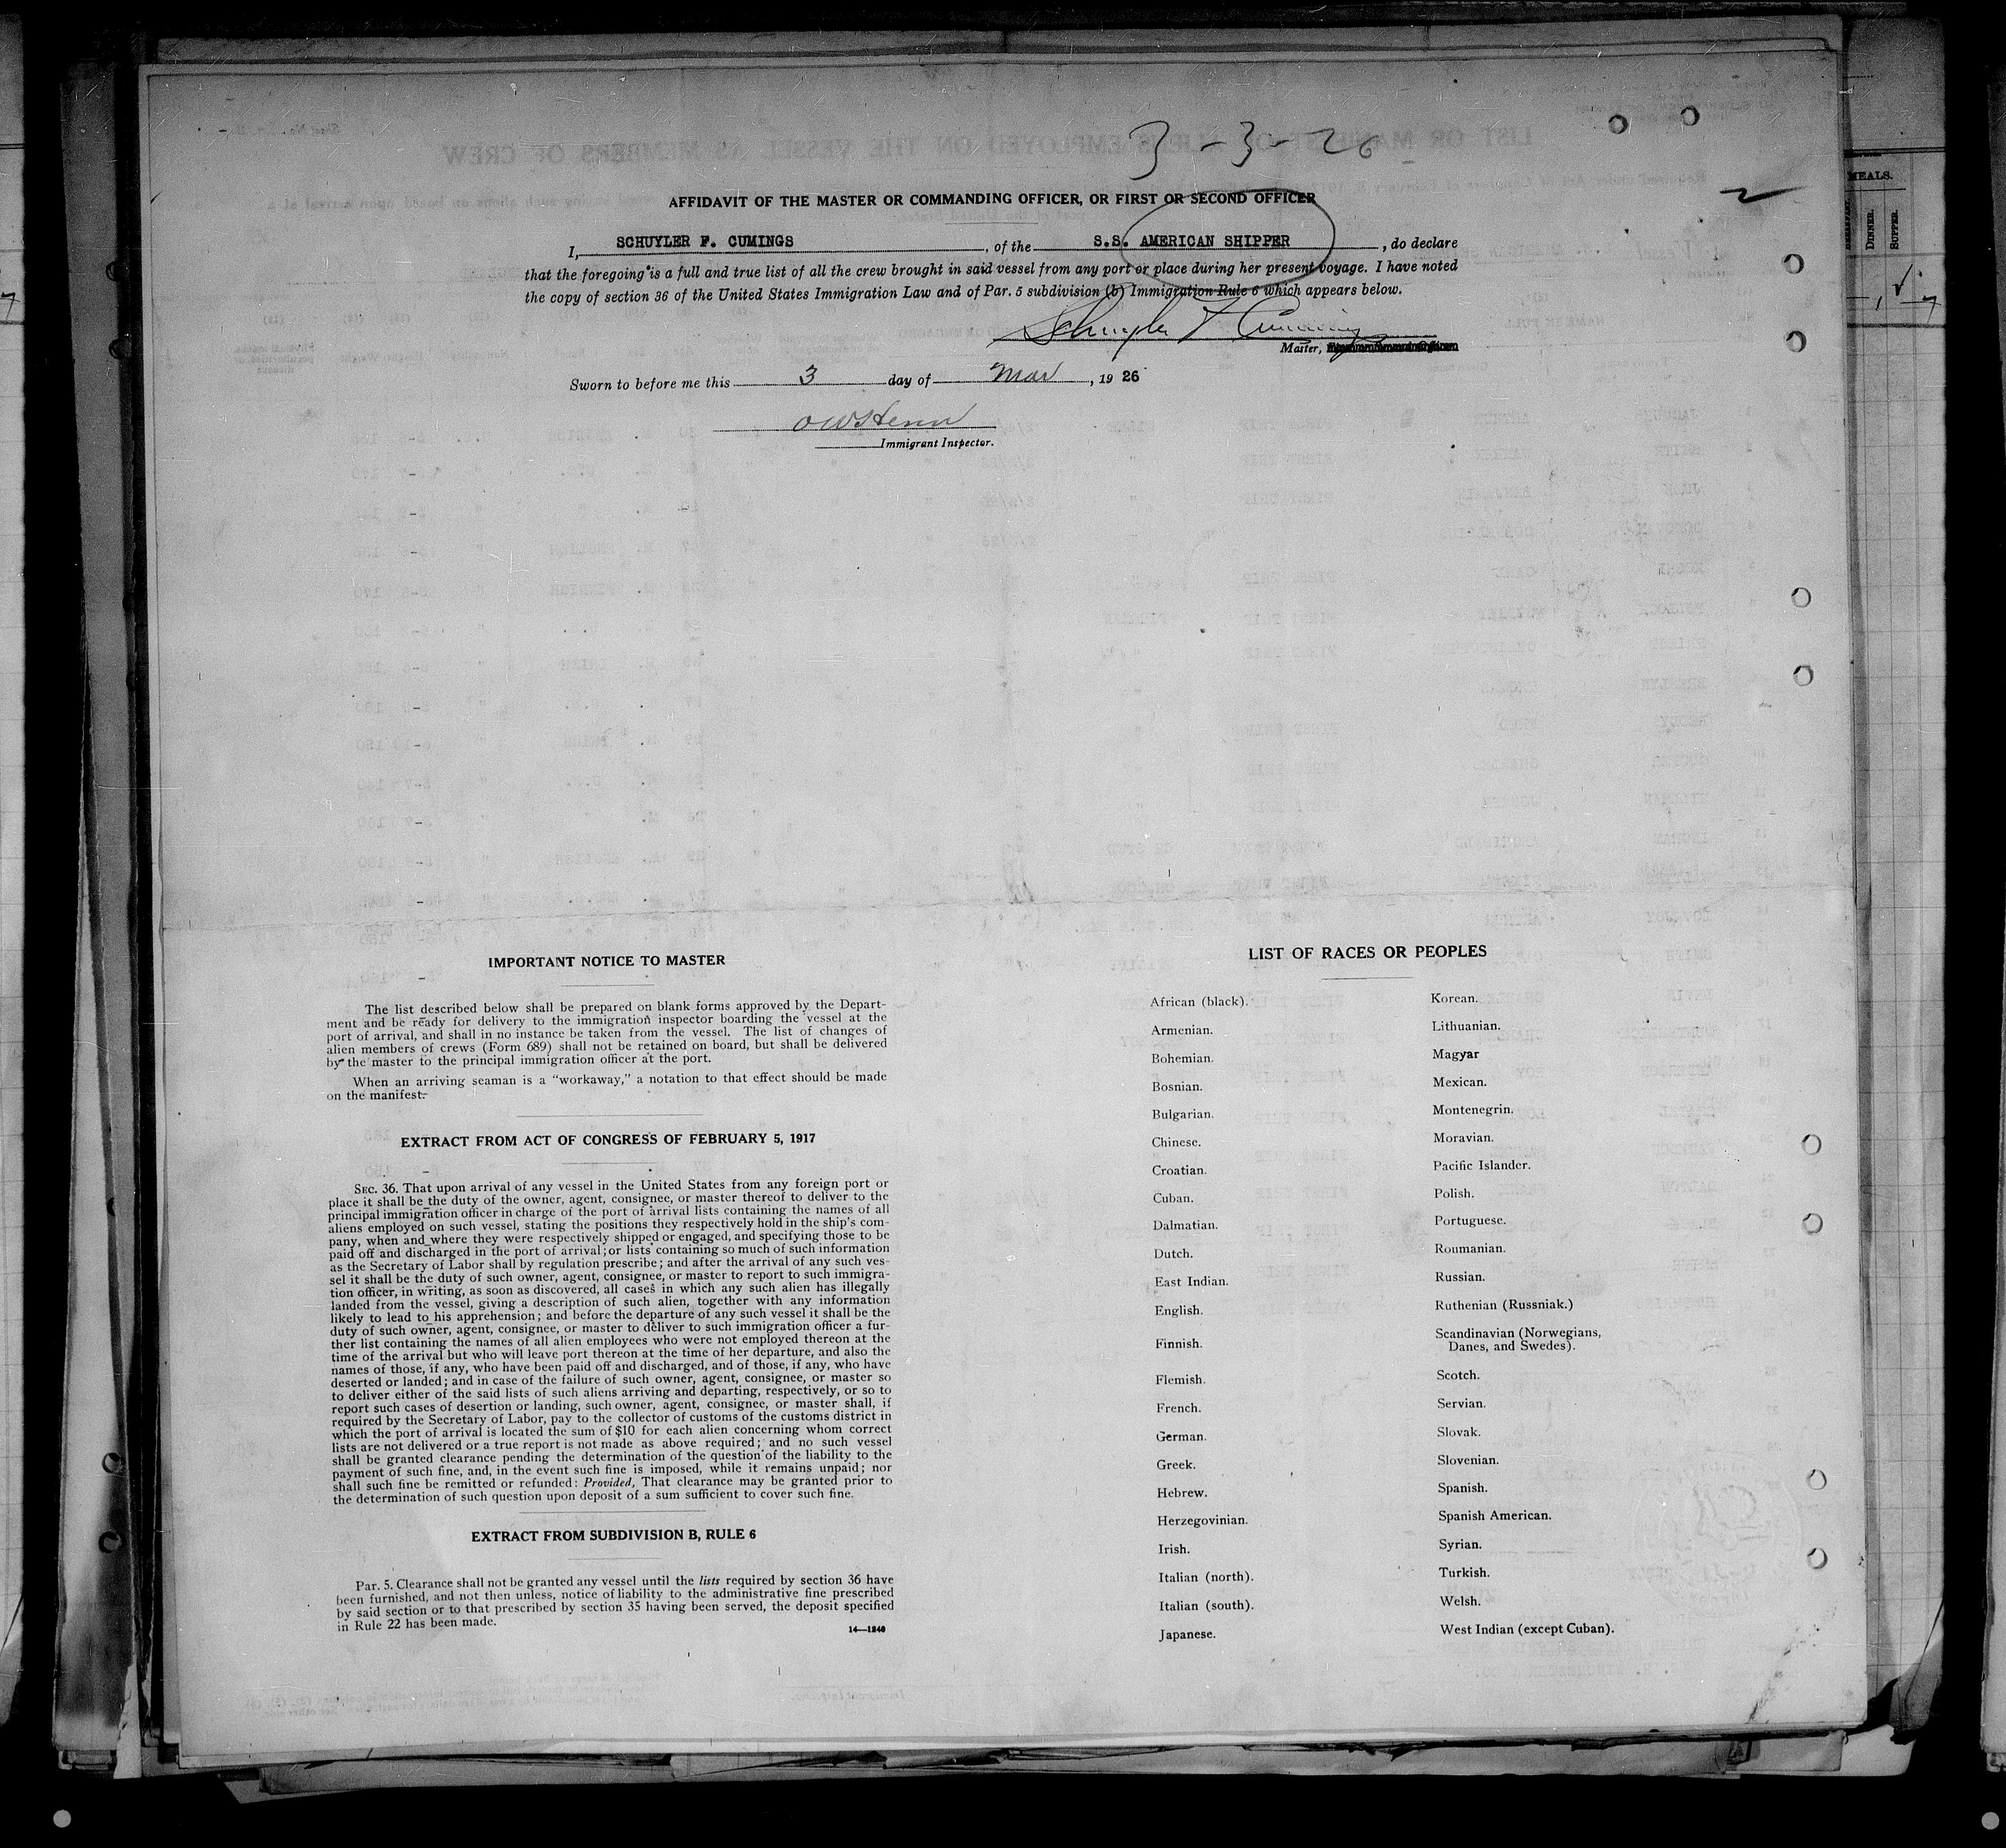 3-3-26
AFFIDAVIT OF THE MASTER OR COMMANDING OFFICER, OR FIRST OR SECOND OFFICER
I, SCHUYLER F. CUMINGS, of the S.S. AMERICAN SHIPPER, do declare
that the foregoing is a full and true list of all the crew brought in said vessel from any port or place during her present voyage. I have noted
the copy of section 36 of the United States Immigration Law and of Par. 5 subdivision (b) Immigration Rule 6 which appears below.
Schuyler F Cumings
Master,
Sworn to before me this 3 day of Mar, 19 26
Immigrant Inspector.
MEALS.
DINNER.
SUPPER.
IMPORTANT NOTICE TO MASTER
The list described below shall be prepared on blank forms approved by the Depart-
ment and be ready for delivery to the immigration inspector boarding the vessel at the
port of arrival, and shall in no instance be taken from the vessel. The list of changes of
alien members of crews (Form 689) shall not be retained on board, but shall be delivered
by the master to the principal immigration officer at the port.
When an arriving seaman is a "workaway," a notation to that effect should be made
on the manifest.
EXTRACT FROM ACT OF CONGRESS OF FEBRUARY 5, 1917
SEC. 36. That upon arrival of any vessel in the United States from any foreign port or
place it shall be the duty of the owner, agent, consignee, or master thereof to deliver to the
principal immigration officer in charge of the port of arrival lists containing the names of all
aliens employed on such vessel, stating the positions they respectively hold in the ship's com-
pany, when and where they were respectively shipped or engaged, and specifying those to be
paid off and discharged in the port of arrival; or lists containing so much of such information
as the Secretary of Labor shall by regulation prescribe; and after the arrival of any such ves-
sel it shall be the duty of such owner, agent, consignee, or master to report to such immigra-
tion officer, in writing, as soon as discovered, all cases in which any such alien has illegally
landed from the vessel, giving a description of such alien, together with any information
likely to lead to his apprehension; and before the departure of any such vessel it shall be the
duty of such owner, agent, consignee, or master to deliver to such immigration officer a fur-
ther list containing the names of all alien employees who were not employed thereon at the
time of the arrival but who will leave port thereon at the time of her departure, and also the
names of those, if any, who have been paid off and discharged, and of those, if any, who have
deserted or landed; and in case of the failure of such owner, agent, consignee, or master so
to deliver either of the said lists of such aliens arriving and departing, respectively, or so to
report such cases of desertion or landing, such owner, agent, consignee, or master shall, if
required by the Secretary of Labor, pay to the collector of customs of the customs district in
which the port of arrival is located the sum of $10 for each alien concerning whom correct
lists are not delivered or a true report is not made as above required; and no such vessel
shall be granted clearance pending the determination of the question of the liability to the
payment of such fine, and, in the event such fine is imposed, while it remains unpaid; nor
shall such fine be remitted or refunded: Provided, That clearance may be granted prior to
the determination of such question upon deposit of a sum sufficient to cover such fine.
EXTRACT FROM SUBDIVISION B, RULE 6
Par. 5. Clearance shall not be granted any vessel until the lists required by section 36 have
been furnished, and not then unless, notice of liability to the administrative fine prescribed
by said section or to that prescribed by section 35 having been served, the deposit specified
in Rule 22 has been made.
14—1240
LIST OF RACES OR PEOPLES
African (black).
Armenian.
Bohemian.
Bosnian.
Bulgarian.
Chinese.
Croatian.
Cuban.
Dalmatian.
Dutch.
East Indian.
English.
Finnish.
Flemish.
French.
German.
Greek.
Hebrew.
Herzegovinian.
Irish.
Italian (north).
Italian (south).
Japanese.
Korean.
Lithuanian.
Magyar
Mexican.
Montenegrin.
Moravian.
Pacific Islander.
Polish.
Portuguese.
Roumanian.
Russian.
Ruthenian (Russniak.)
Scandinavian (Norwegians,
Danes, and Swedes).
Scotch.
Servian.
Slovak.
Slovenian.
Spanish.
Spanish American.
Syrian.
Turkish.
Welsh.
West Indian (except Cuban).